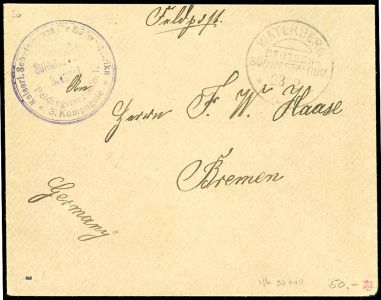 Feldpost.
Kaiserl. Schutztruppe für Südwestafrika
Feldregiment
3. Kompagnie
WATERBERG
DEUTSCH-
SÜDWESTAFRIKA
An
Herrn F. W. Haase
Bremen
Germany
50.-